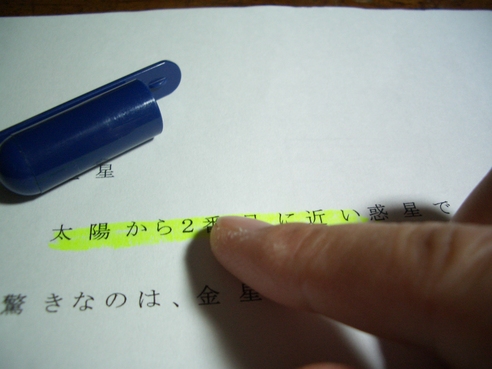 星
太陽から2番目に近い惑星で
驚きなのは、金星